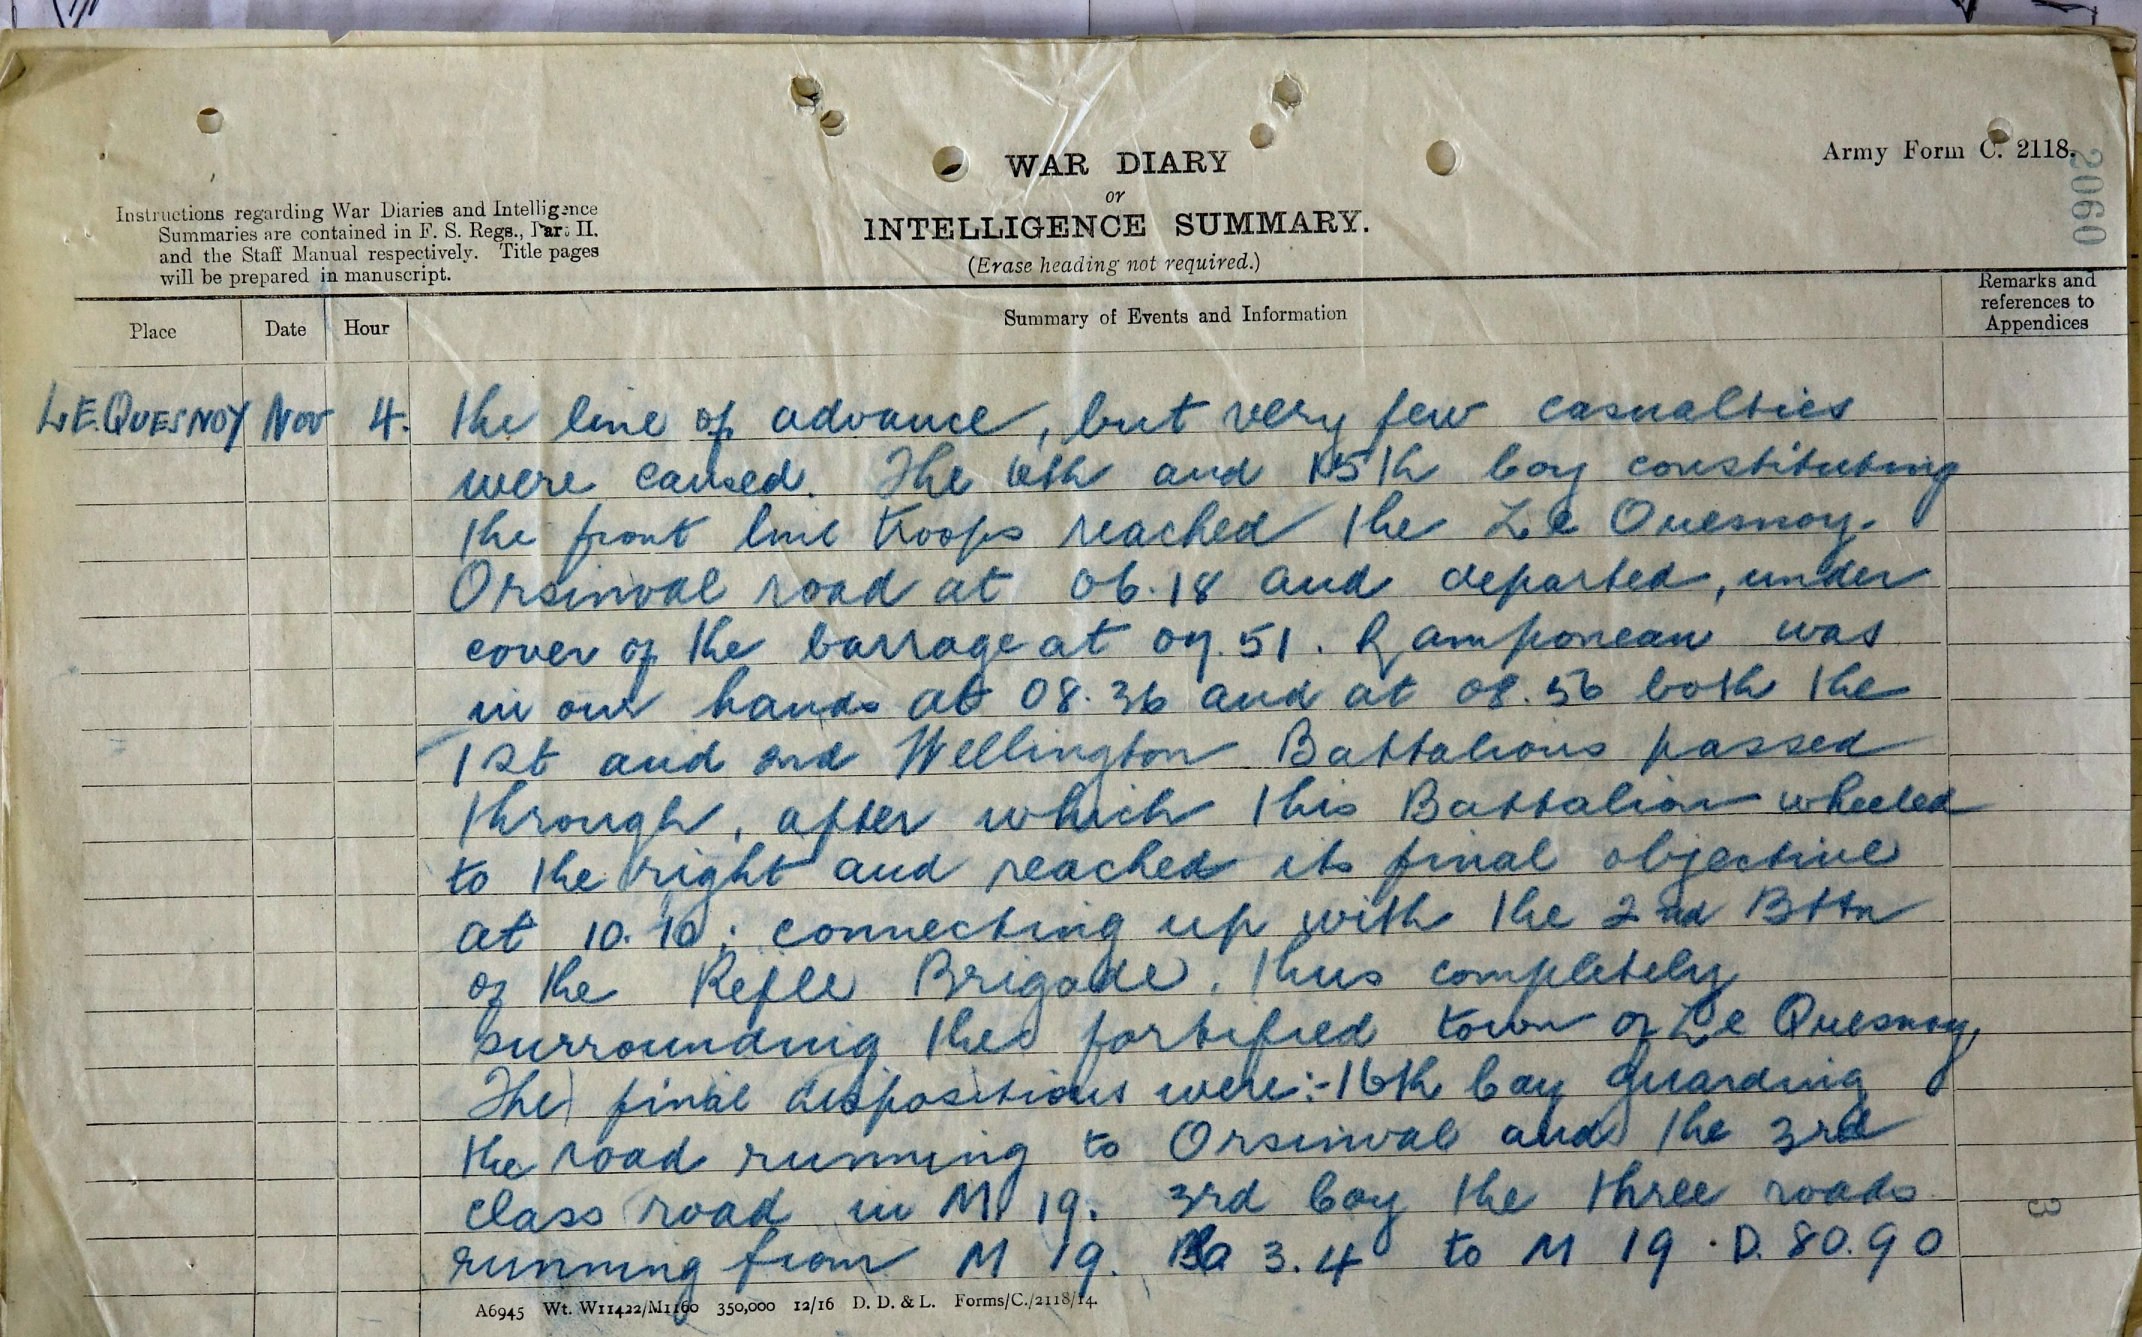 Army Form C. 2118.
2060
WAR DIARY
or
INTELLIGENCE SUMMARY.
(Erase heading not required.)
Instructions regarding War Diaries and Intelligence
Summaries are contained in F. S. Regs., Part II.
and the Staff Manual respectively. Title pages
will be prepared in manuscript.
Place Date Hour Summary of Events and Information Remarks and
references to
Appendices
LE.QUESNOY Nov 4. the line of advance, but very few casualties
were caused. The and 15th Coy constituting
the front line troops reached the Le Quesnoy-
Orsinval road at 06.18 and departed, under
cover of the barrage at 07.51. Ramponeau was
in our hands at 08.36 and at 08.56 both the
1st and 2nd Wellington Battalions passed
through, after which this Battalion wheeled
to the right and reached its final objective
at 10.10; connecting up with the 2nd Bttn
of the Rifle Brigade, thus completely
surrounding the fortified town of Le Quesnoy,
The final dispositions were:- 16th Coy guarding
the road running to Orsinval and the 3rd
class road in M 19. 3rd Coy the three roads
running from M 19. 3.4 to M 19.D.80.90
3
A6945 Wt. W11422/M1160 350,000 12/16 D. D. & L. Forms/C./2118/14.